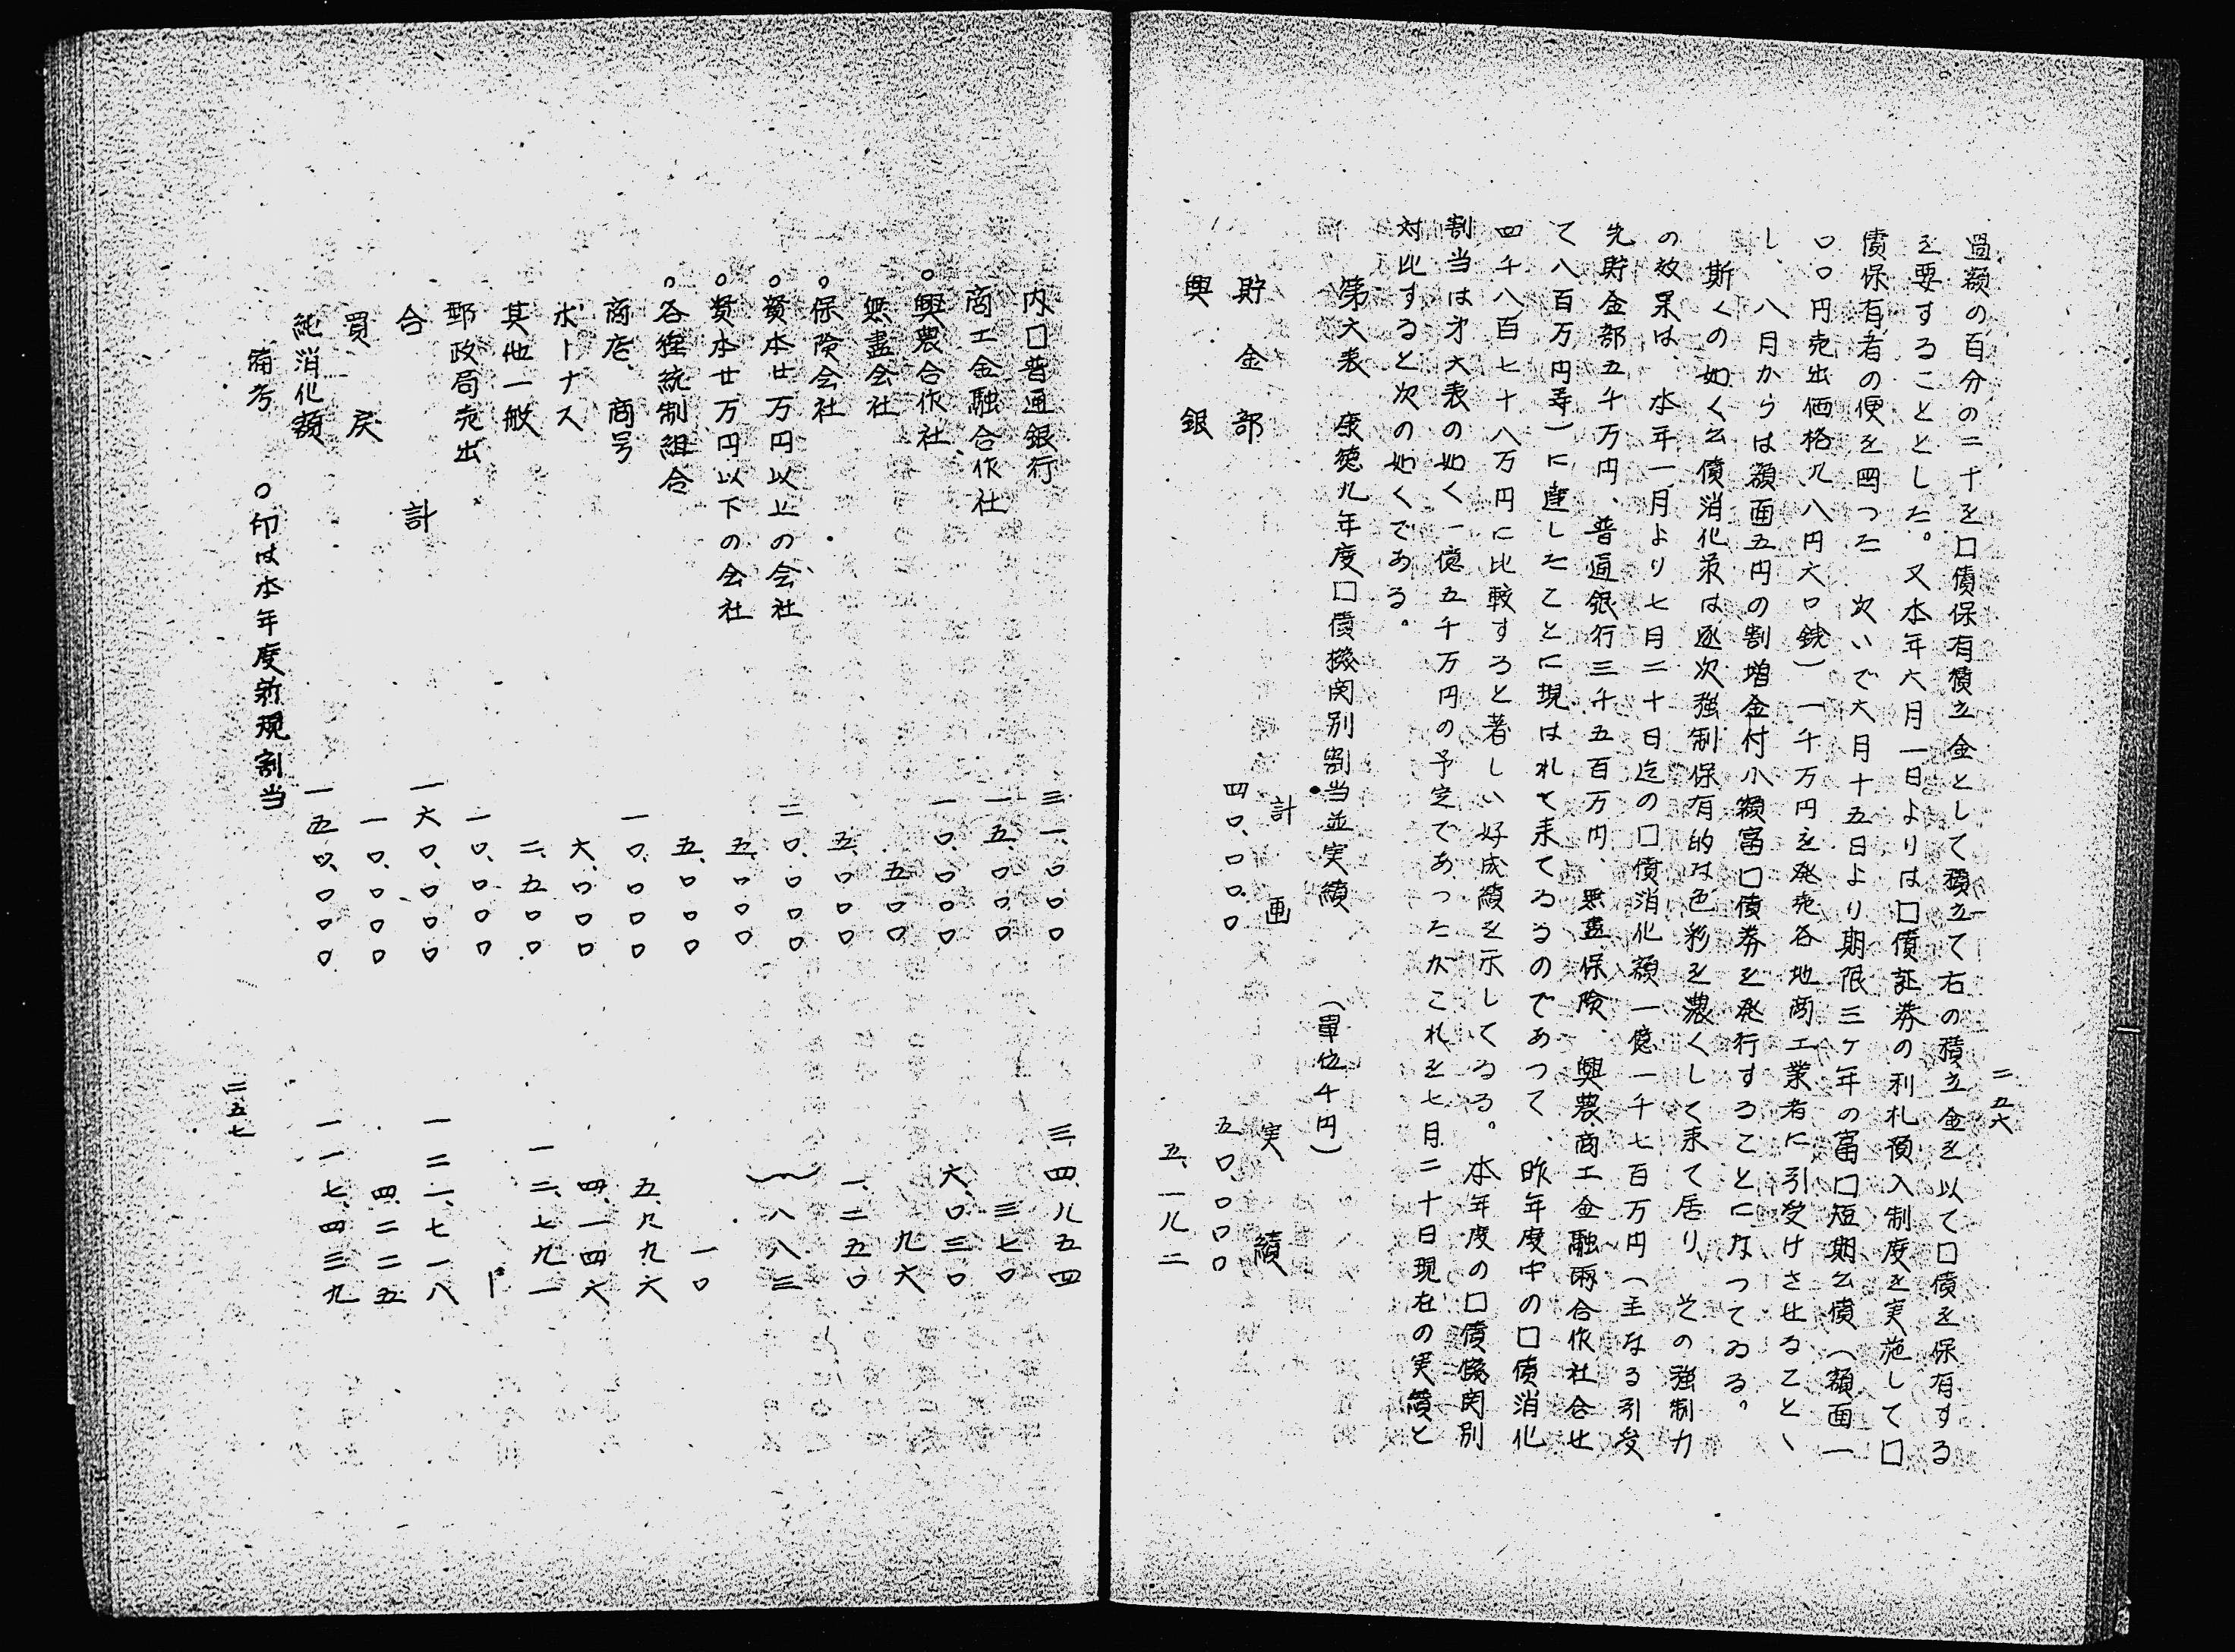 二五六
過額の百分の二十を囗債保有積立金として積立て右の積立金を以て囗債を保有する
を要することとした。又本年六月一日よりは囗債証券の利札預入制度を実施して囗
債保有者の便を図つた 次いで六月十五日より期限三ヶ年の富囗短期公債（額面一
〇〇円売出価格九八円六〇銭）一千万円を発売各地商工業者に引受けさせること丶
し、八月からは額面五円の割増金付小額富囗債券を発行することになつてゐる。
斯くの如く公債消化策は逐次強制保有的な色彩を濃くして来て居り、その強制力
の效果は、本年一月より七月二十日迄の囗債消化額一億一千七百万円（主なる引受
先貯金部五千万円、普通銀行三千五百万円、無盡、保険、興農、商工金融両合作社合せ
て八百万円等）に達したことに現はれて来てゐるのであつて、昨年度中の囗債消化
四千八百七十八万円に比較すると著しい好成績を示してゐる。本年度の囗債機関別
割当は才六表の如く一億五千万円の予定であつたがこれを七月二十日現在の実績と
対比すると次の如くである。
第六表 康徳九年度囗債機関別割当並実績 （單位千円）
計画 実績
貯金部 四〇、〇〇〇 五〇、〇〇〇
興銀 五、一八二
内囗普通銀行 三一、〇〇〇 三四、八五四
商工金融合作社 一五、〇〇〇 三七〇
○興農合作社 一〇、〇〇〇 六、〇三〇
無盡会社 五〇〇 九六
○保険会社 五、〇〇〇 一、二五〇
○資本廿万円以上の会社 二〇、〇〇〇 八八三
○資本廿万円以下の会社 五、〇〇〇
○各種統制組合 五、〇〇〇 一〇
商店、商号 一〇、〇〇〇 五、九九六
ボーナス 六、〇〇〇 四、一四六
其他一般 二、五〇〇 一二、七九一
郵政局売出 一〇、〇〇〇 ー
合計 一六〇、〇〇〇 一二一、七一八
買戻 一〇、〇〇〇 四、二二五
純消化額 一五〇、〇〇〇 一一七、四三九
備考 ○印は本年度新規割当
二五七